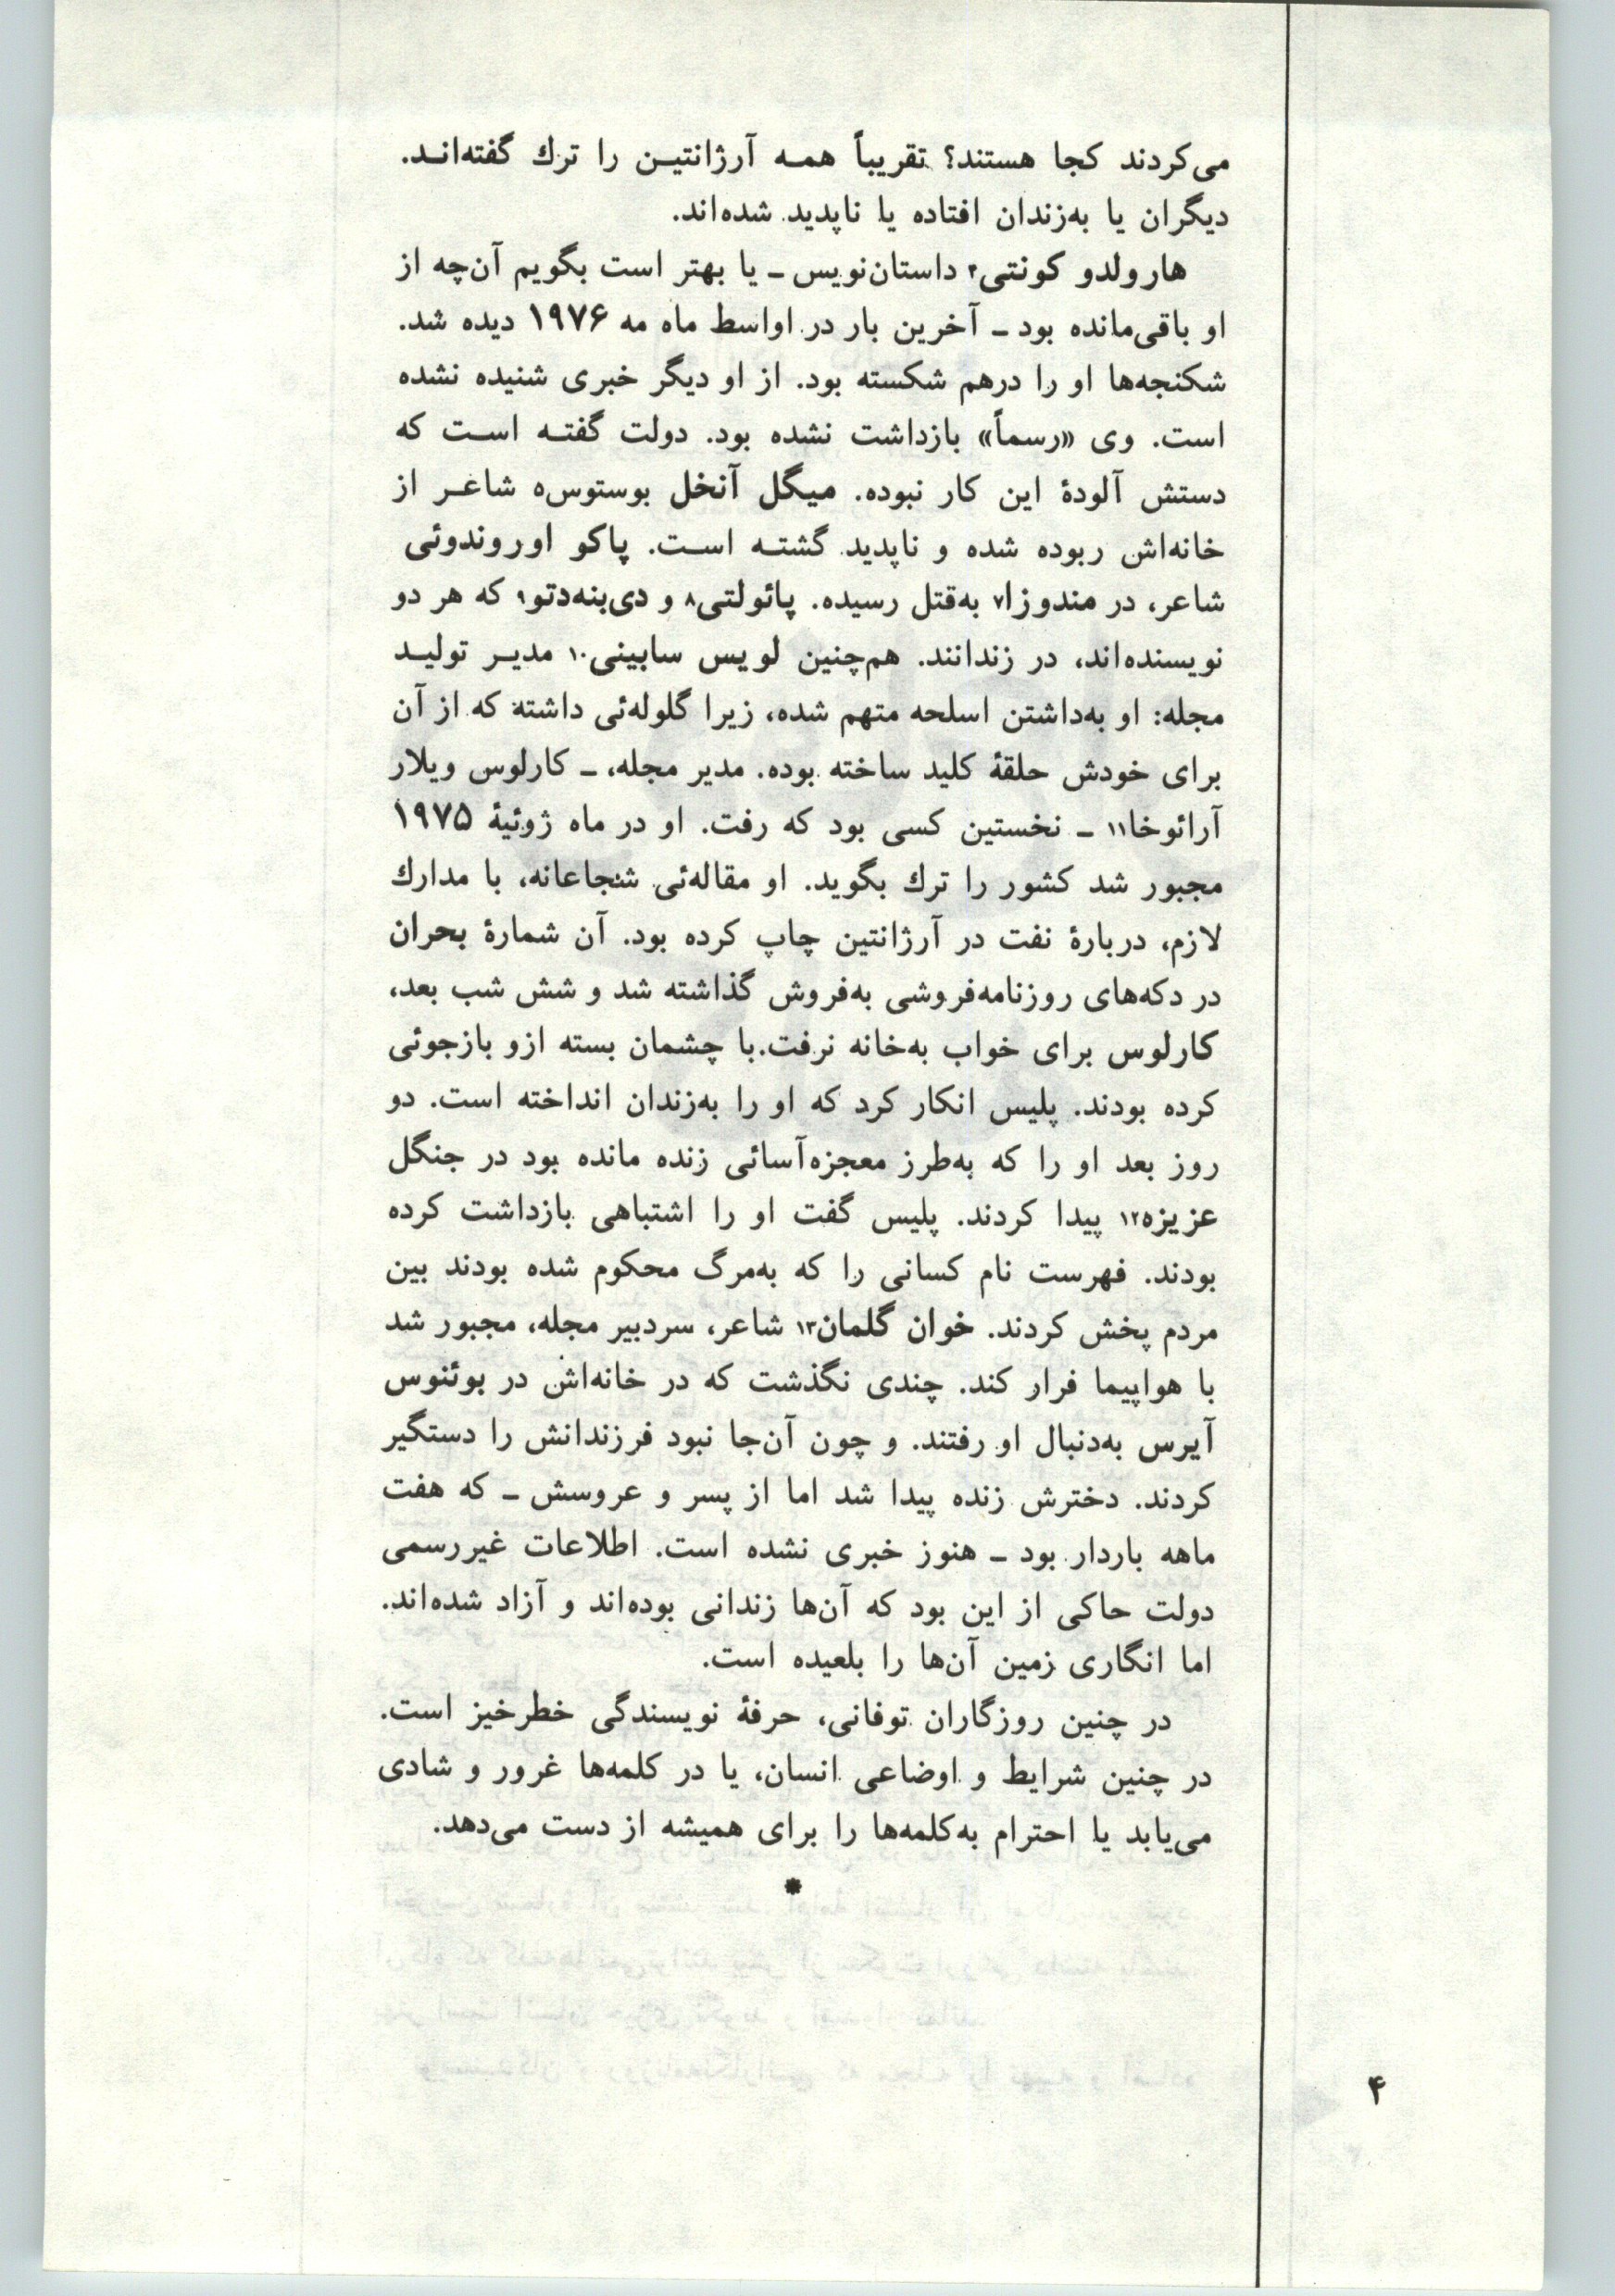 می‌کردند کجا هستند؟ تقریباً همـه آرژانتیـن را ترك گفته‌انـد.
دیگران یا به‌زندان افتاده یا ناپدید شده‌اند.
هارولدو کونتی۴ داستان‌نویس ـ یا بهتر است بگویم آن‌چه از
او باقی‌مانده بود ـ آخرین بار در اواسط ماه مه ۱۹۷۶ دیده شد.
شکنجه‌ها او را درهم شکسته بود. از او دیگر خبری شنیده نشده
است. وی «رسماً» بازداشت نشده بود. دولت گفتـه اسـت که
دستش آلودهٔ این کار نبوده. میگل آنخل بوستوس۵ شاعـر از
خانه‌اش ربوده شده و ناپدید گشتـه اسـت. پاکو اوروندوئی
شاعر، در مندوزا۷ به‌قتل رسیده. پائولتی۸ و دی‌بنه‌دتو۹ که هر دو
نویسنده‌اند، در زندانند. هم‌چنین لویس سابینی۱۰ مدیـر تولیـد
مجله: او به‌داشتن اسلحه متهم شده، زیرا گلوله‌ئی داشته که از آن
برای خودش حلقهٔ کلید ساخته بوده. مدیر مجله، ـ کارلوس ویلار
آرائوخا۱۱ ـ نخستین کسی بود که رفت. او در ماه ژوئیهٔ ۱۹۷۵
مجبور شد کشور را ترك بگوید. او مقاله‌ئی شجاعانه، با مدارك
لازم، دربارهٔ نفت در آرژانتین چاپ کرده بود. آن شمارهٔ بحران
در دکه‌های روزنامه‌فروشی به‌فروش گذاشته شد و شش شب بعد،
کارلوس برای خواب به‌خانه نرفت. با چشمان بسته ازو بازجوئی
کرده بودند. پلیس انکار کرد که او را به‌زندان انداخته است. دو
روز بعد او را که به‌طرز معجزه‌آسائی زنده مانده بود در جنگل
عزیزه۱۲ پیدا کردند. پلیس گفت او را اشتباهی بازداشت کرده
بودند. فهرست نام کسانی را که به‌مرگ محکوم شده بودند بین
مردم پخش کردند. خوان گلمان۱۳ شاعر، سردبیر مجله، مجبور شد
با هواپیما فرار کند. چندی نگذشت که در خانه‌اش در بوئنوس
آیرس به‌دنبال او رفتند. و چون آن‌جا نبود فرزندانش را دستگیر
کردند. دخترش زنده پیدا شد اما از پسر و عروسش ـ که هفت
ماهه باردار بود ـ هنوز خبری نشده است. اطلاعات غیررسمی
دولت حاکی از این بود که آن‌ها زندانی بوده‌اند و آزاد شده‌اند.
اما انگاری زمین آن‌ها را بلعیده است.
در چنین روزگاران توفانی، حرفهٔ نویسندگی خطرخیز است.
در چنین شرایط و اوضاعی انسان، یا در کلمه‌ها غرور و شادی
می‌یابد یا احترام به‌کلمه‌ها را برای همیشه از دست می‌دهد.
*
۴